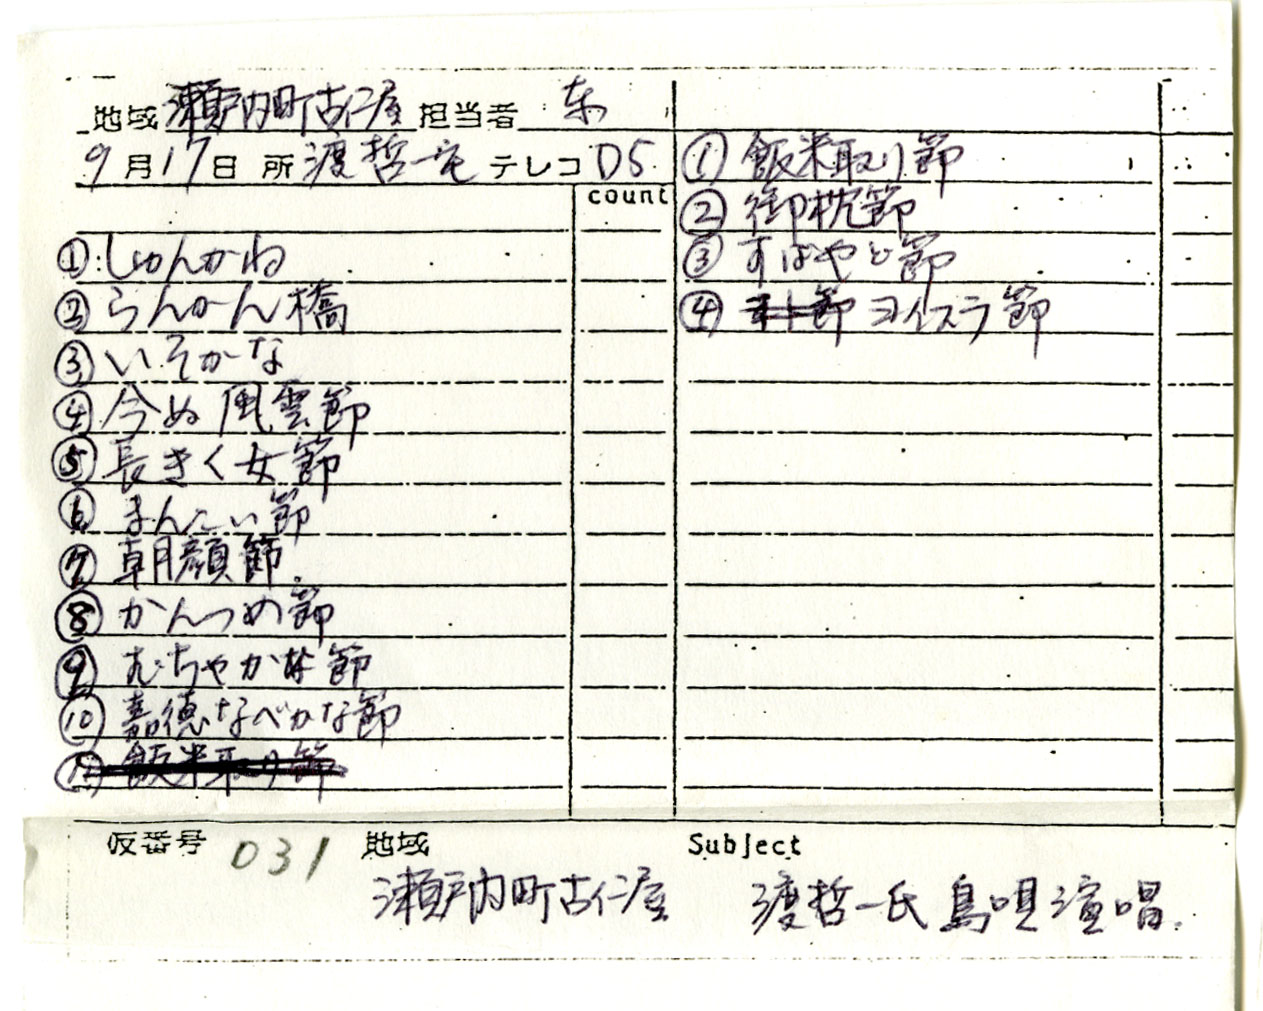 地域 瀬戸内町古仁屋 担当者 東
9月17日 所 渡哲一宅 テレコ D5
count
① しゅんかね
② らんかん橋
③ いそかな
④ 今ぬ風雲節
⑤ 長きく女節
⑥ まんこい節
⑦ 朝顔節
⑧ かんつめ節
⑨ むちゃかな節
⑩ 嘉徳なべかな節
⑪ 飯米取り節
① 飯米取り節
② 御枕節
③ すばやど節
④ ヨイスラ節
仮番号 031 地域 Subject
瀬戸内町古仁屋 渡哲一氏島唄演唱.